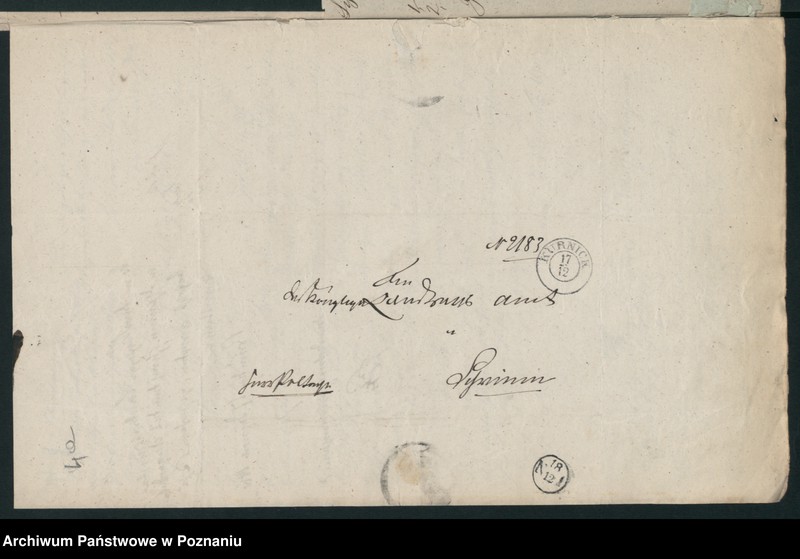 № 2183
KURNICK
17
12
An
das Königliche Landraths Amt
Schrimm
18
12
Archiwum Państwowe w Poznaniu